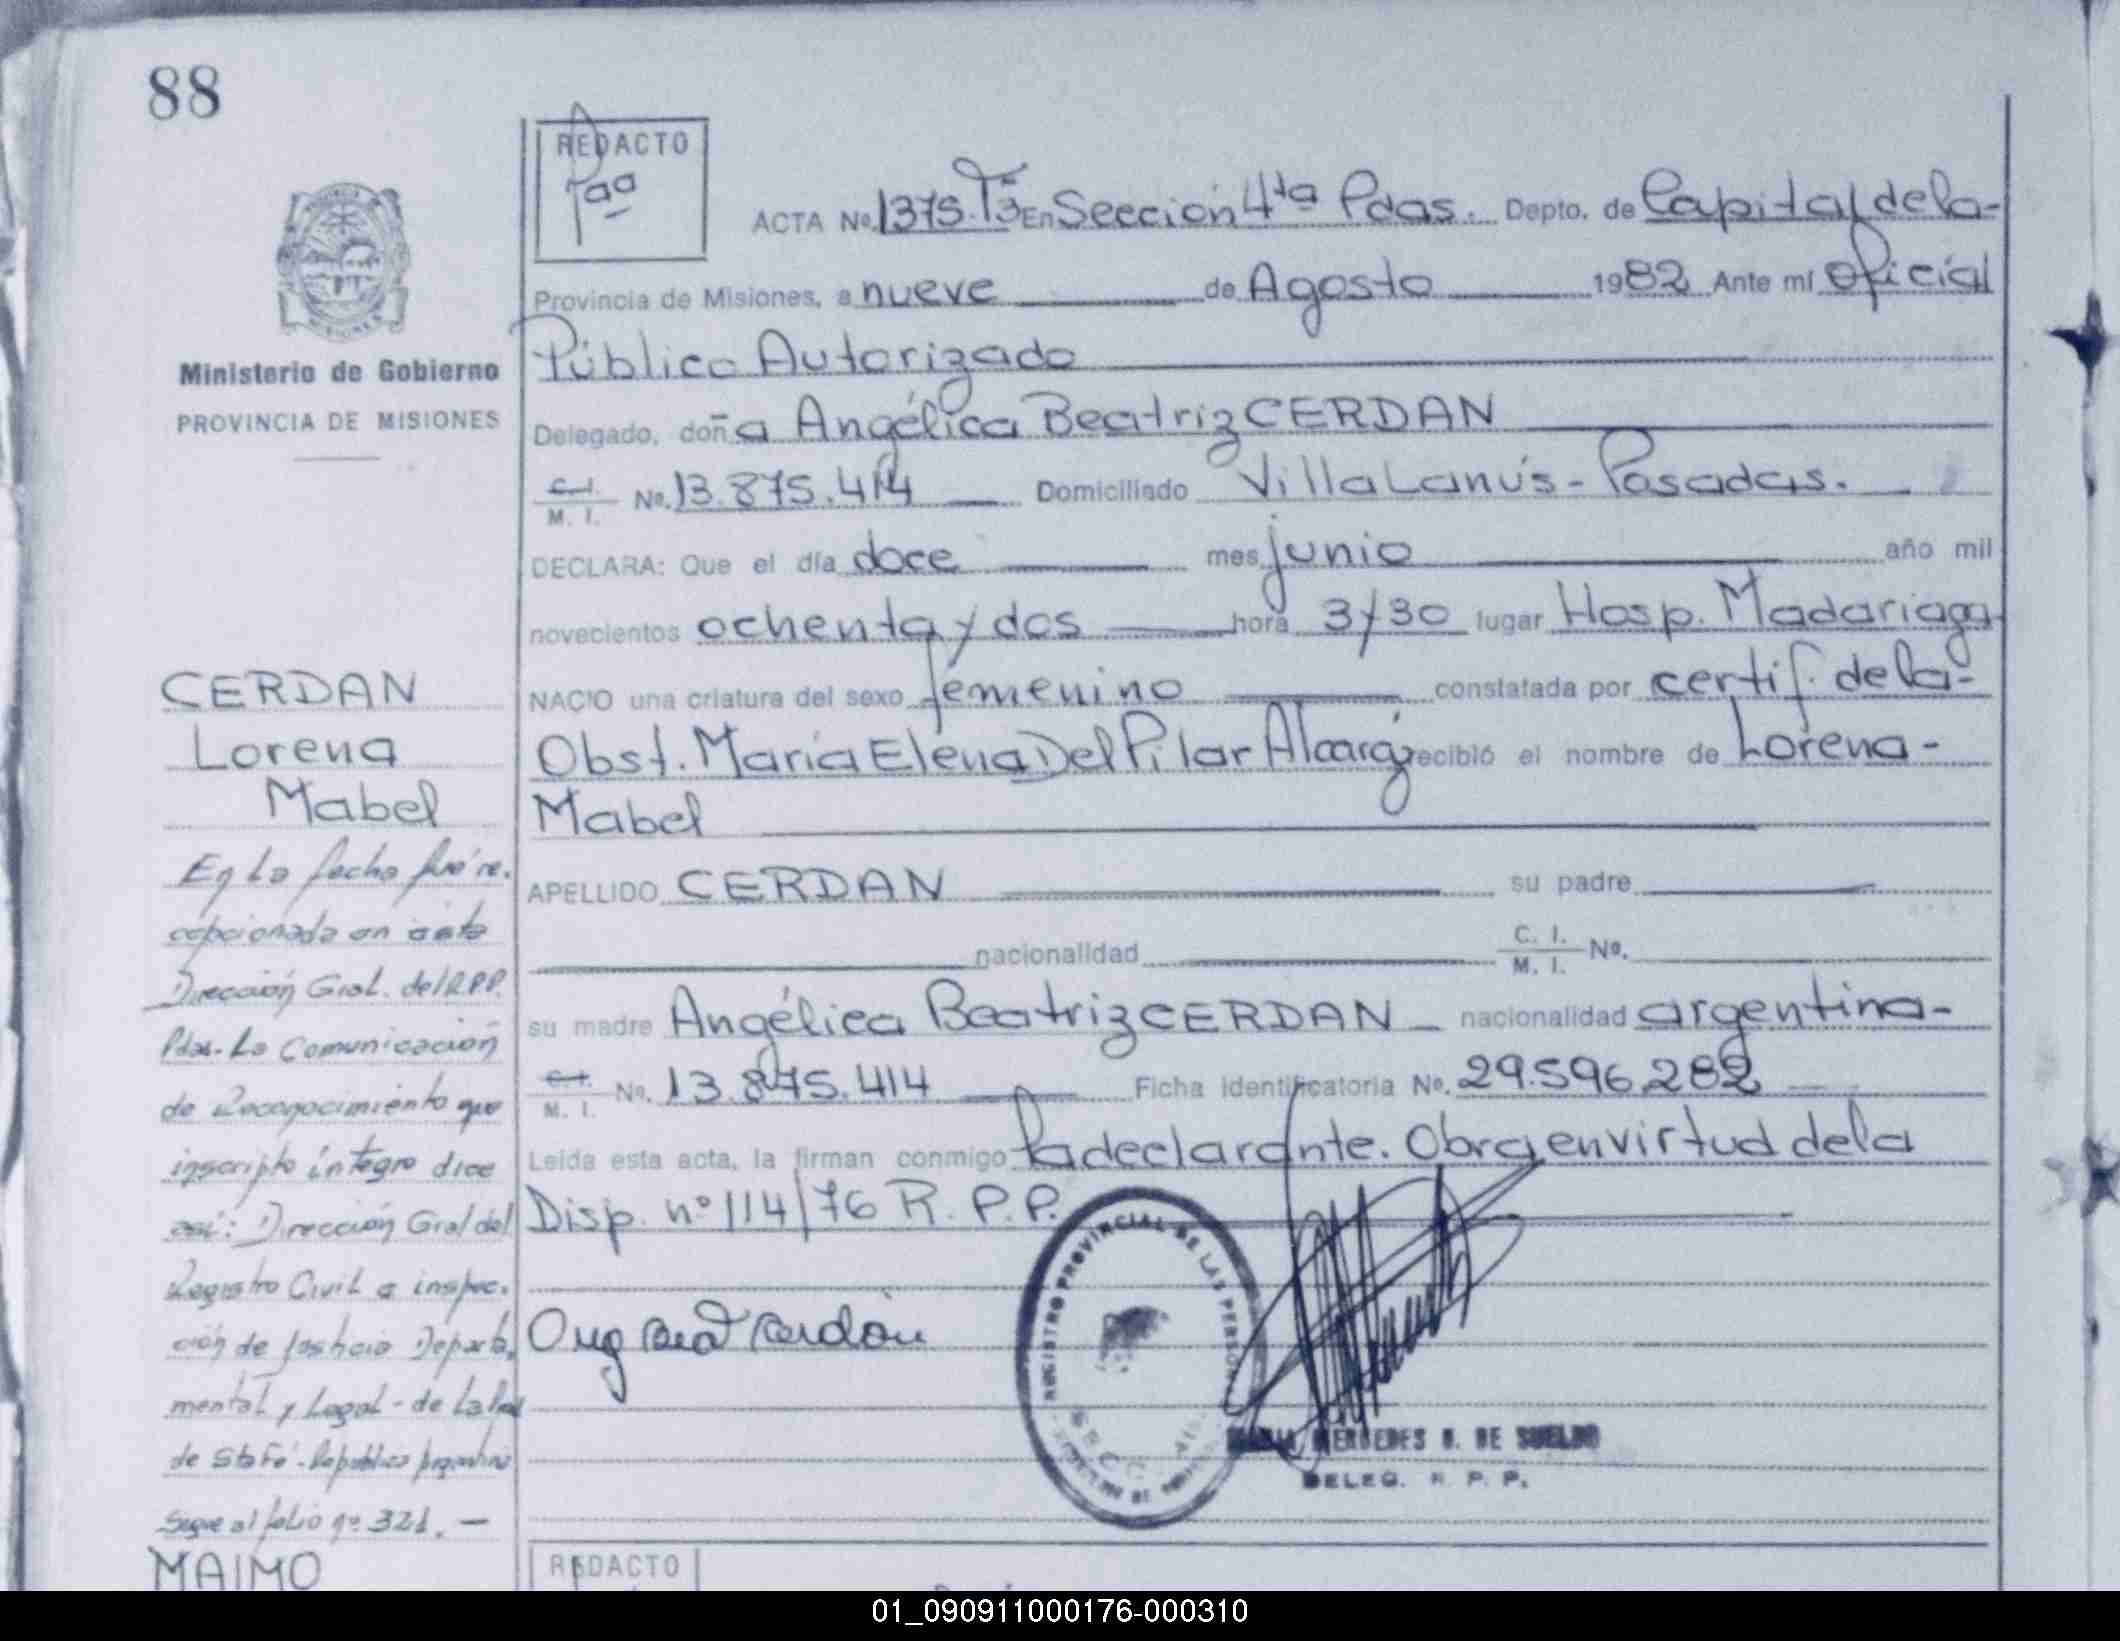 88
REDACTO
ACTA No. 1375. T3 En Sección 4ta Pdas. Depto. de Capital de la-
Provincia de Misiones, a nueve de Agosto 1982 Ante mí Oficial
Público Autorizado
Delegado, doña Angélica Beatriz CERDAN
C. I.
M. I. No. 13.875.414 Domiciliado Villa Lanús - Posadas.
DECLARA: Que el día doce mes junio año mil
novecientos ochenta y dos hora 3/30 lugar Hosp. Madariaga
NACIO una criatura del sexo femenino constatada por certif. de la-
Obst. María Elena Del Pilar Alcaráz recibió el nombre de Lorena-
Mabel
APELLIDO CERDAN su padre
nacionalidad C. I. M. I. No.
su madre Angélica Beatriz CERDAN nacionalidad argentina-
C. I.
M. I. No. 13.875.414 Ficha identificatoria No. 29.596.282
Leída esta acta, la firman conmigo la declarante. Obra en virtud de la
Disp. nº 114/76 R. P. P.
Ang Bea Cerdán
REGISTRO PROVINCIAL DE LAS PERSONAS
MERCEDES DE SUELDO
DELEG. R. P. P.
Ministerio de Gobierno
PROVINCIA DE MISIONES
CERDAN
Lorena
Mabel
En La fecha fué re.
cepcionada en ésta
Dirección Gral. del R.P.P.
Pdas. La Comunicación
de Reconocimiento que
inscripto íntegro dice
así: Dirección Gral del
Registro Civil e inspec.
ción de Justicia Departa.
mental y Legal - de La
de Sta Fé - República Argentina
Segue al folio nº 321. -
MAIMO
REDACTO
01_090911000176-000310